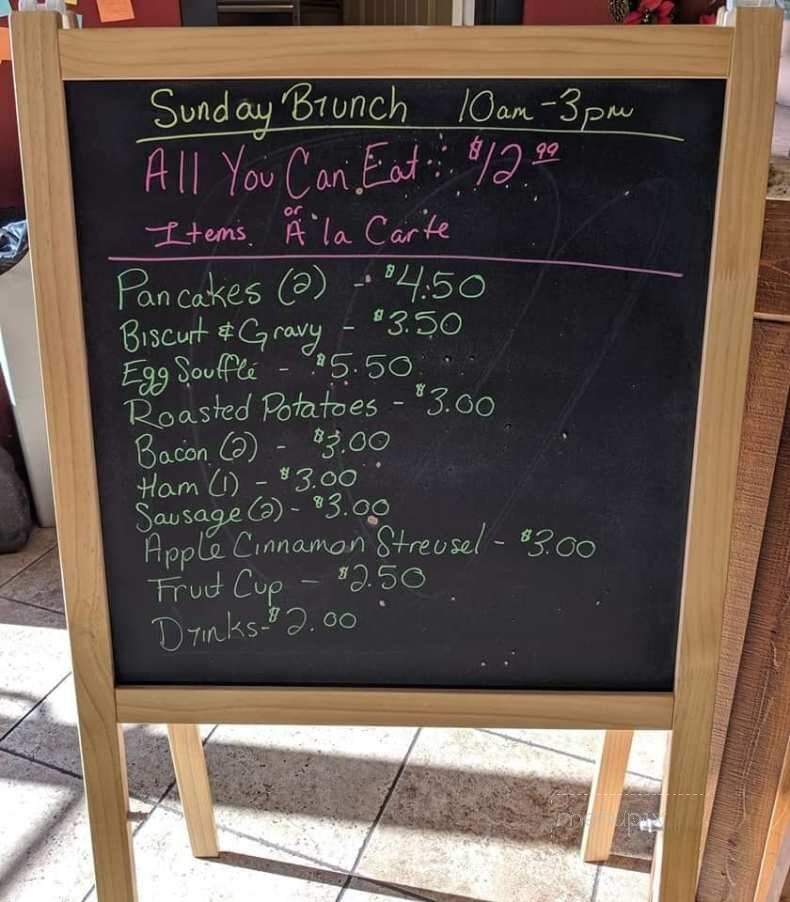 Sunday Brunch 10am-3pm
All You Can Eat $12.99
or
Items A la Carte
Pancakes (2) - $4.50
Biscuit & Gravy - $3.50
Egg Soufflé - $5.50
Roasted Potatoes - $3.00
Bacon (2) - $3.00
Ham (1) - $3.00
Sausage (2) - $3.00
Apple Cinnamon Streusel - $3.00
Fruit Cup - $2.50
Drinks - $2.00